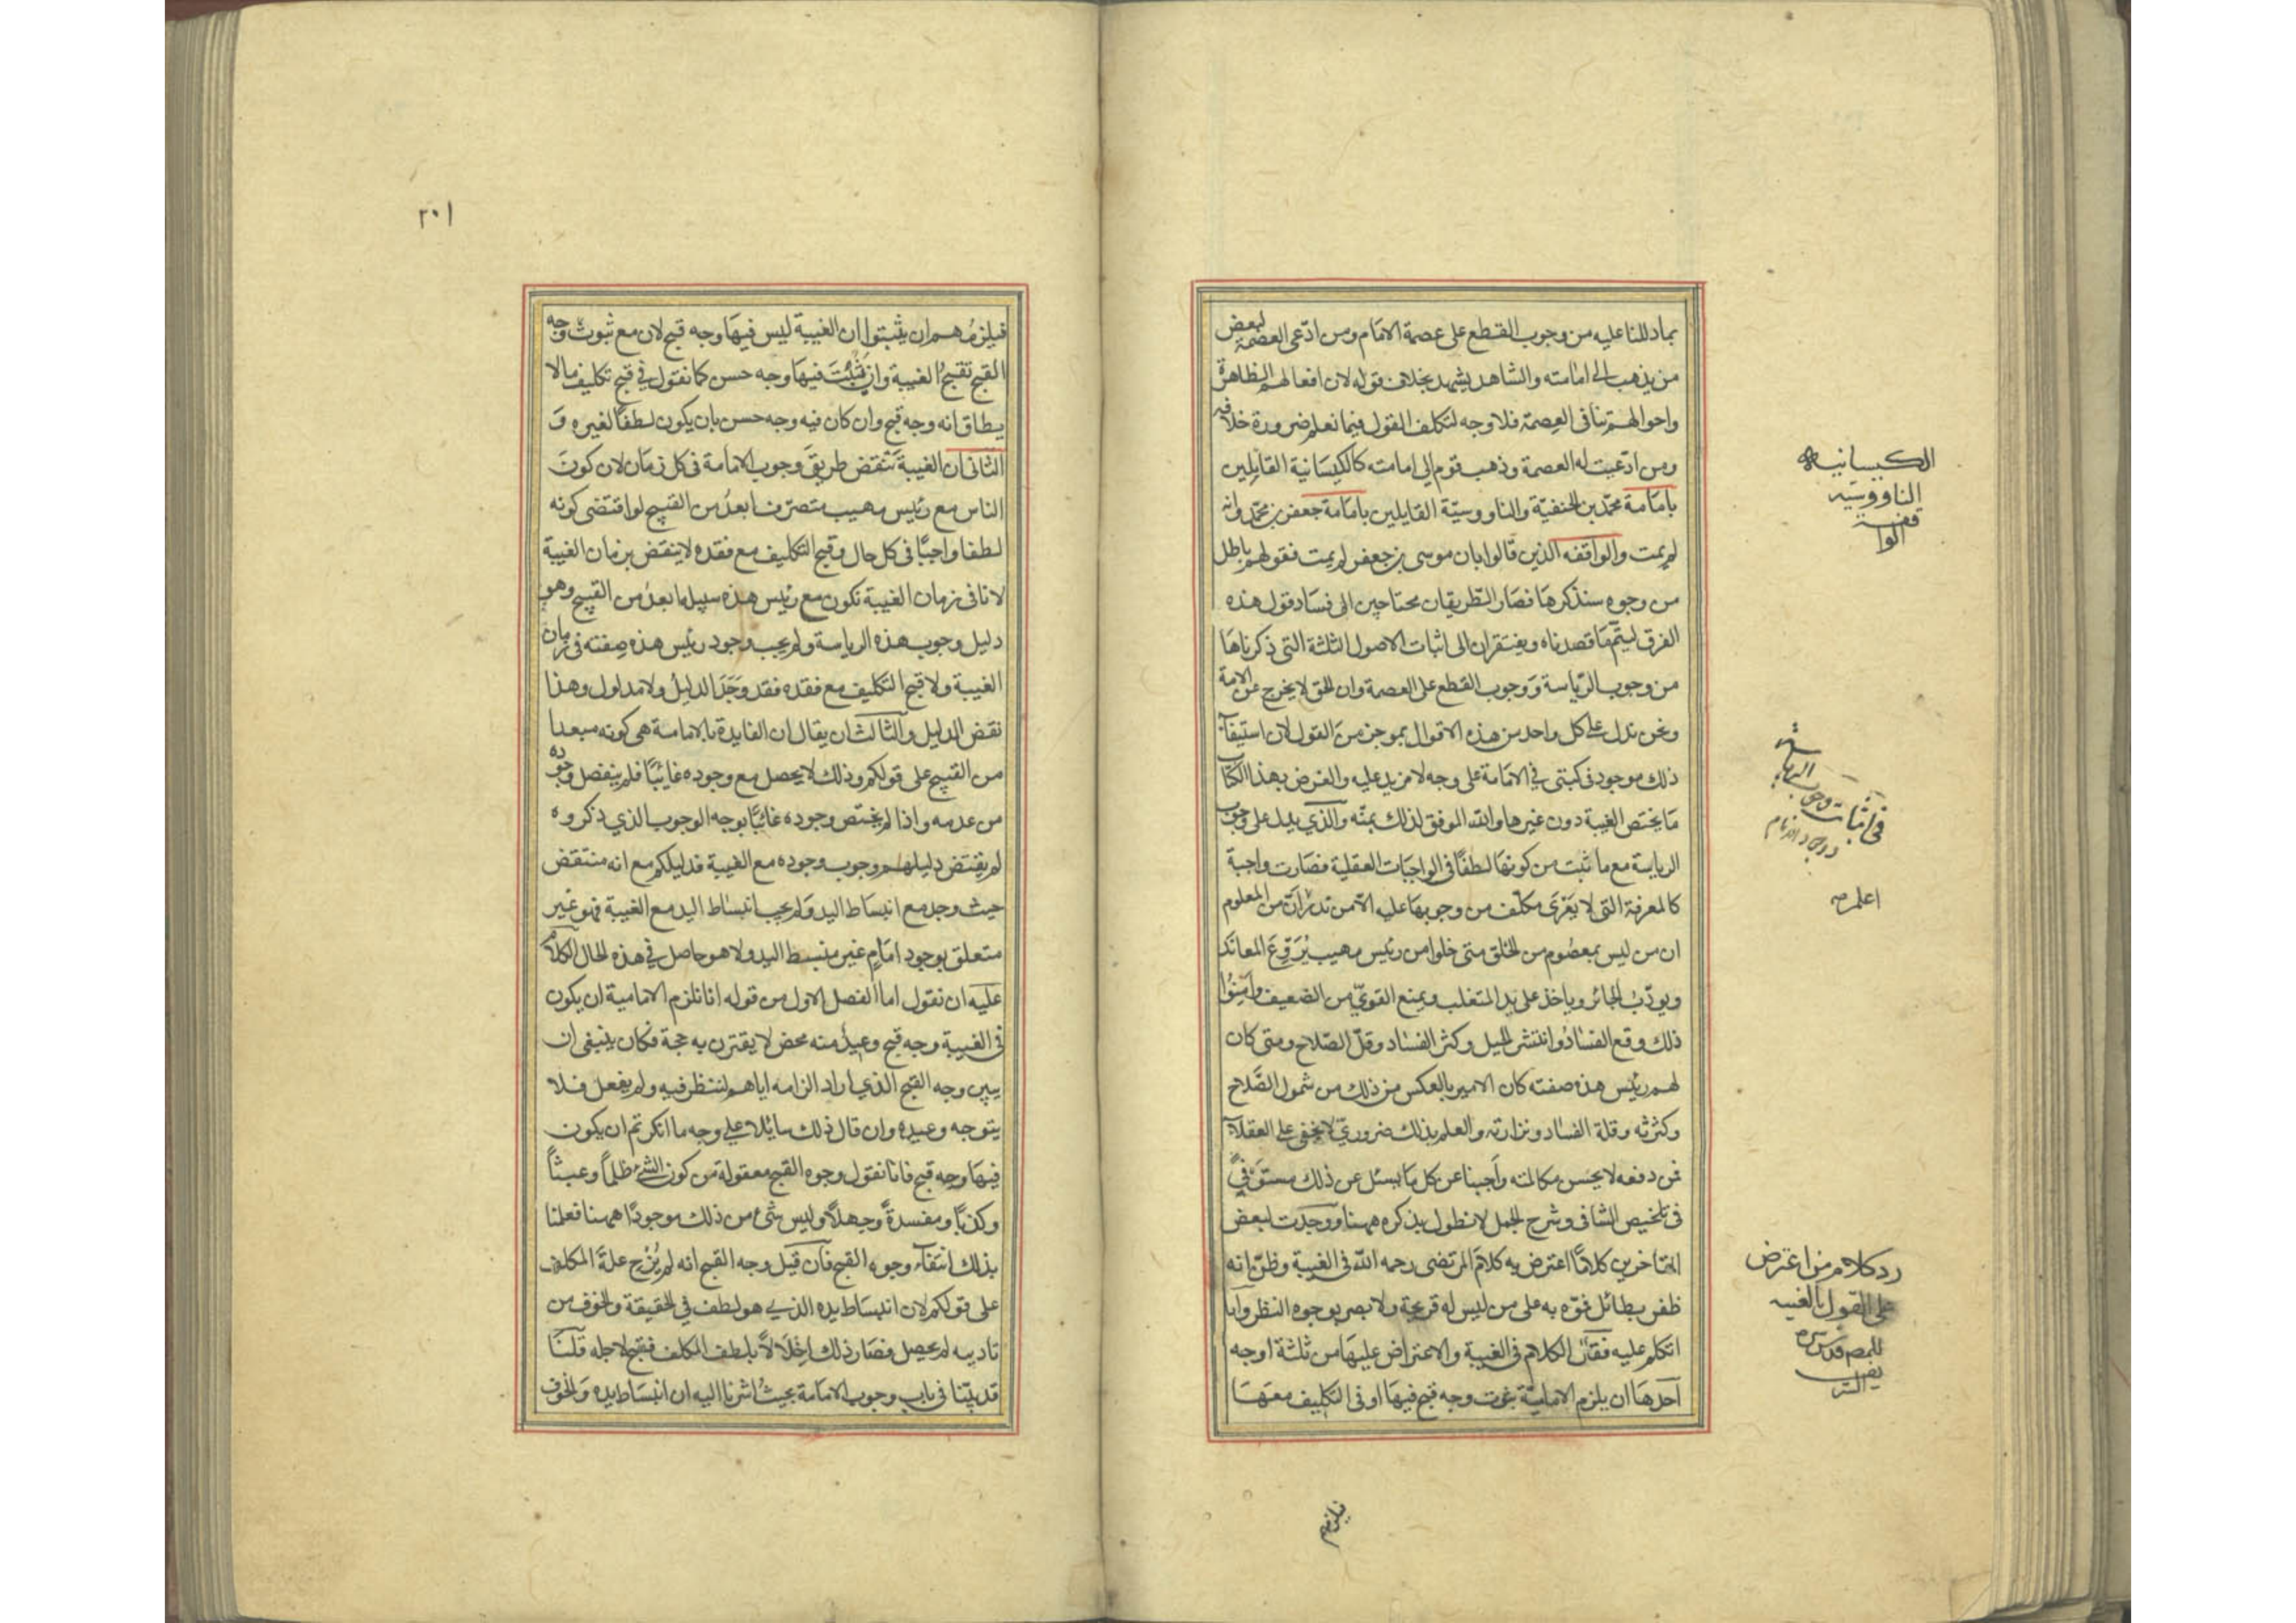 بما دللنا عليه من وجوب القطع على عصمة الامام ومن ادّعى العصمة لبعض
من يذهب الى امامته والشاهد يشهد بخلاف قوله لان افعالهم الظاهرة
واحوالهم تنافى العصمة فلا وجه لتكلف القول فيما نعلم ضرورة خلافه
ومن ادّعيت له العصمة وذهب قوم الى امامته كالكيسانية القايلين
بامامة محمّد بن الحنفيّة والناووسيّة القايلين بامامة جعفر بن محمّد وانه
لم يمت والواقفه الذين قالوا بان موسى بن جعفر لم يمت فقولهم باطل
من وجوه سنذكرها فصار الطّريقان محتاجين الى فساد قول هذه
الفرق ليتمّ ما قصدناه ويفتقران الى اثبات الاصول الثلثة التى ذكرناها
من وجوب الرّياسة ووجوب القطع على العصمة وان الحق لا يخرج عن الامة
ونحن ندل على كل واحد من هذه الاقوال بموجز من القول لان استيفآء
ذلك موجود فى كتبتى فى الامامة على وجه لا مزيد عليه والغرض بهذا الكتاب
ما يختص الغيبة دون غيرها والله الموفق لذلك بمنّه والّذي يدل على وجوب
الرياسة مع ما ثبت من كونها لطفًا فى الواجبات العقلية فصارت واجبة
كالمعرفة التى لا يعرى مكلّف من وجوبها عليه الا من المعلوم
ان من ليس بمعصوم من الخلق متى خلوا من رئيس مهيب يردع المعاند
ويودّب الجائر وياخذ على يد المتغلب ويمنع القويّ من الضعيف وامنوا
ذلك وقع الفساد وانتشر الحيل وكثر الفساد وقلّ الصّلاح ومتى كان
لهم رئيس هذه صفته كان الامر بالعكس من ذلك من شمول الصّلاح
وكثرته وقلة الفساد ونزارته والعلم بذلك ضروريّ لا يخفى على العقلآء
فمن دفعه لا يحسن مكالمته واجبنا عن كل ما يسئل عن ذلك مستوفىً
فى تلخيص الشافى وشرح الجمل لا نطول بذكره ههنا ووجدت لبعض
المتاخرين كلامًا اعترض به كلام المرتضى رحمه الله فى الغيبة وظنّ انه
ظفر بطائل فموّه به على من ليس له قريحة ولا بصر بوجوه النظر وانا
اتكلم عليه فقال الكلام فى الغيبة والاعتراض عليها من ثلثة اوجه
احدها ان يلزم الاماميّة ثبوت وجه قبح فيها او فى التكليف معها
فيلزمهم
الكيسانيه
الناووسيه
الواقفية
فى اثبات وجوب الرياسة
ووجود الامام
رد كلام من اعترض
على القول بالغيبه
للمص قدس سره
الشريف
٢٠١
فيلزمهم ان يثبتوا ان الغيبة ليس فيها وجه قبح لان مع ثبوت وجه
القبح تقبح الغيبة وان ثبت فيها وجه حسن كما نقول فى قبح تكليف ما لا
يطاق انه وجه قبح وان كان فيه وجه حسن بان يكون لطفًا لغيره و
الثانى ان الغيبة تنقض طريق وجوب الامامة فى كل زمان لان كون
الناس مع رئيس مهيب متصرّف ابعد من القبيح لو اقتضى كونه
لطفا واجبًا فى كل حال وقبح التكليف مع فقده لا ينقض بزمان الغيبة
لانا فى زمان الغيبة نكون مع رئيس هذه سبيله ابعد من القبيح وهو
دليل وجوب هذه الرياسة ولم يجب وجود رئيس هذه صفته فى زمان
الغيبة ولا قبح التكليف مع فقده فقد وجد الدليل ولا مدلول وهذا
نقض الدليل والثالث ان يقال ان الفايدة بالامامة هى كونه مبعدا
من القبيح على قولكم وذلك لا يحصل مع وجوده غائبًا فلم ينفصل وجوده
من عدمه واذا لم يختص وجوده غائبًا بوجه الوجوب الذي ذكروه
لم يقتض دليلهم وجوب وجوده مع الغيبة فدليلكم مع انه منتقض
حيث وجد مع انبساط اليد ولم يجب انبساط اليد مع الغيبة فهو غير
متعلق بوجود امام غير منبسط اليد ولا هو حاصل فى هذه الحال الكلام
عليه ان نقول اما الفصل الاول من قوله انا نلزم الامامية ان يكون
فى الغيبة وجه قبح وعيد منه محض لا يقترن به حجة فكان ينبغى ان
يبين وجه القبح الذي اراد الزامه اياهم لننظر فيه ولم يفعل فلا
يتوجه وعيده وان قال ذلك سايلا على وجه ما انكرتم ان يكون
فيها وجه قبح فانا نقول وجوه القبح معقولة من كون الشئ ظلمًا وعبثًا
وكذبًا ومفسدةً وجهلاً وليس شئ من ذلك موجودًا ههنا فعلمنا
بذلك انتفآء وجوه القبح فان قيل وجه القبح انه لم يزح علة المكلف
على قولكم لان انبساط يده الذي هو لطف فى الحقيقة والخوف من
تاديبه لم يحصل فصار ذلك اخلالاً بلطف المكلف فقبح لاجله قلنا
قد بيّنا فى باب وجوب الامامة بحيث اشرنا اليه ان انبساط يده والخوف